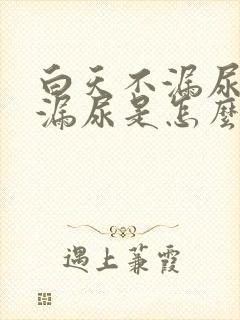 白天不漏尿
漏尿是怎麼
遇上蒹霞